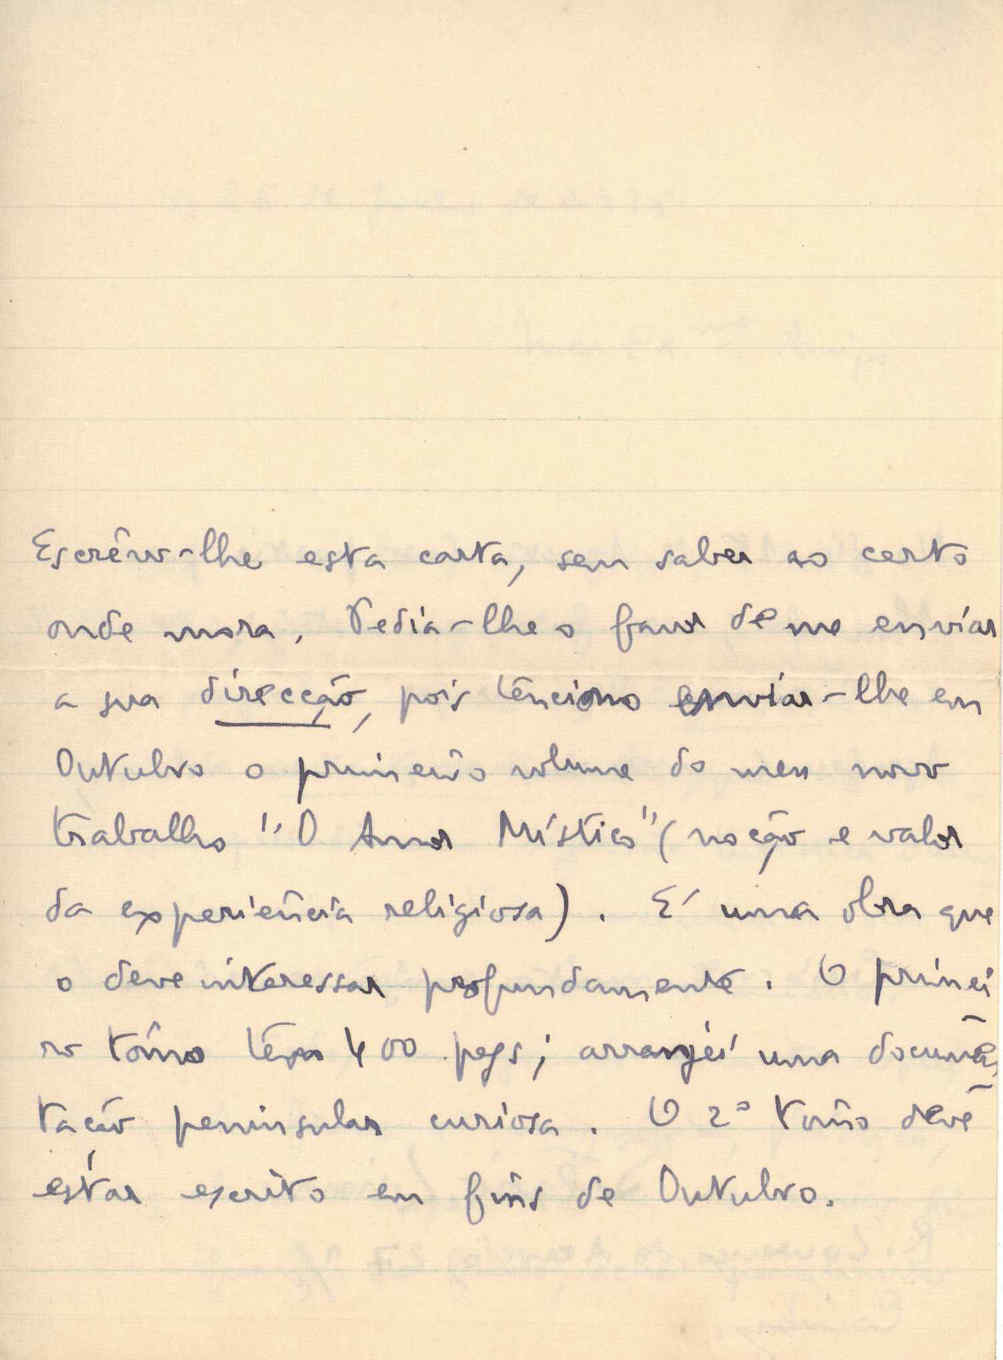 Escrêvo-lhe esta carta, sem saber ao certo
onde mora. Pedia-lhe o favor de me enviar
a sua direcção, pois tenciono enviar-lhe em
Outubro o primeiro volume do meu novo
trabalho "O Amor Místico" (noção e valor
da experiência religiosa). É uma obra que
o deve interessar profundamente. O primei
ro tômo tem 400 pags; arranjei uma documen
tação peninsular curiosa. O 2º tômo deve
estar escrito em fins de Outubro.